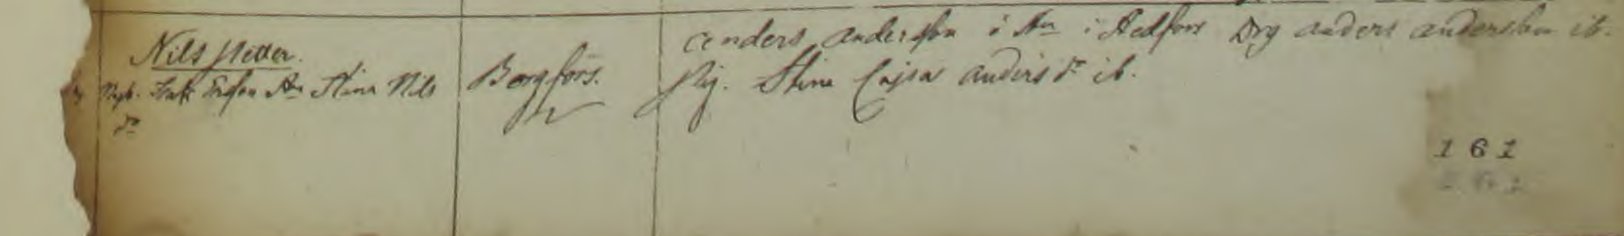 Nils Petter.
Nygb. Isak Ersson Hn Stina Nils
dr
Borgfors.
Anders Andersson o Hn i Hedfors Drg Anders Andersson ib.
Pig. Stina Cajsa Andersdr ib.
161